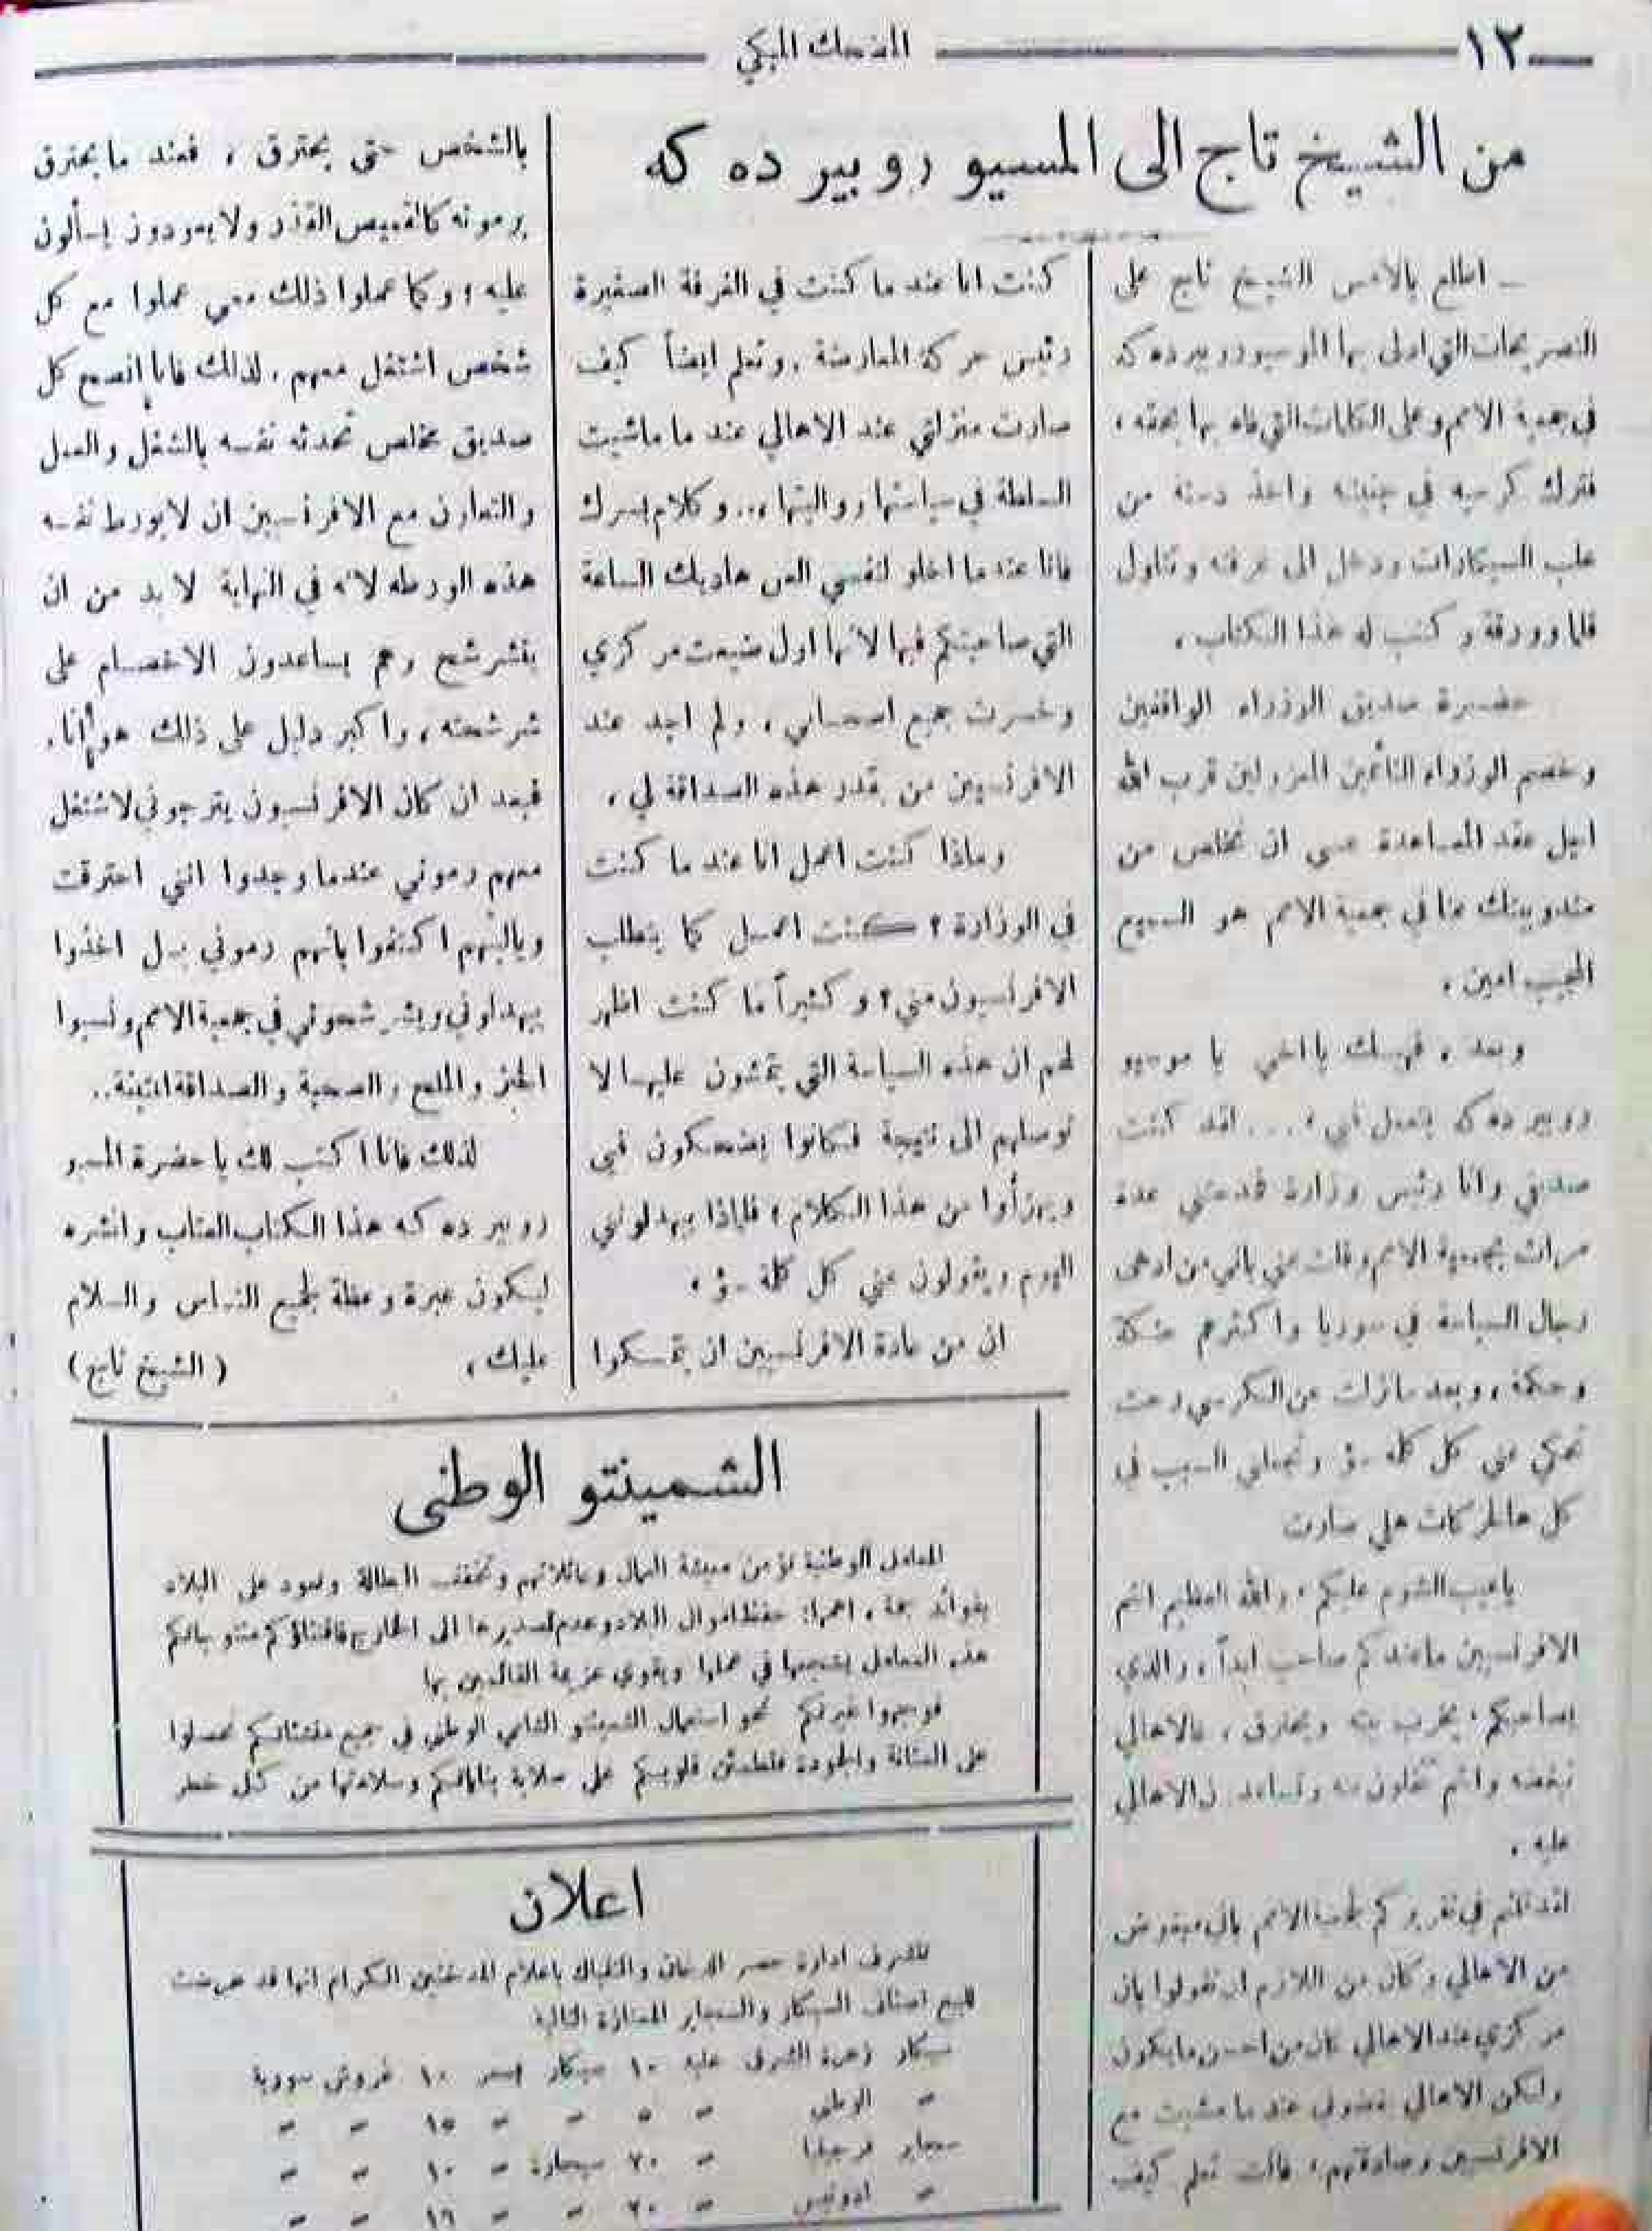 ١٢
المضحك المبكي
من الشيخ تاج الى المسيو روبير ده كه
اطلع بالامس الشيخ تاج على
التصريحات التي ادلى بها الموسيو روبير ده كه
في جمعية الامم وعلى الكلمات التي فاه بها بحقه ،
فترك كرسيه في جنينته واخذ دستة من
علب السيكارات ودخل الى غرفته وتناول
قلما وورقة وكتب له هذا الكتاب .
حضرة صديق الوزراء الواقفين
وخصم الوزراء النائمين المعزولين قرب الله
اجل عقد المساعدة عسى ان نخلص من
مندوبيتك عنا في جمعية الامم هو السميع
المجيب امين .
وبعد ، فهيك يا اخي يا موسيو
روبير ده كه بتعمل فيي ، ... لقد كنت
صديقي وانا رئيس وزارة فدعتني عدة
مرات بجمعية الامم وقلت عني باني من ادهى
رجال السياسة في سوريا واكثرهم حنكة
وحكمة ، وبعد ما نزلت عن الكرسي رحت
تحكي عني كل كلمة سؤ وتجعلني السبب في
كل هالحركات هلي صارت
يا عيب الشوم عليكم ، والله العظيم انتم
الافرنسيين ما عندكم صاحب ابداً ، والذي
يصاحبكم ، يخرب بيته ويحترق ، فالاهالي
تبغضه وانتم تتخلون عنه وتساعدون الاهالي
عليه .
لقد قلتم في تقريركم لجمعية الامم باني مبغوض
من الاهالي وكان من اللازم ان تقولوا بان
مركزي عند الاهالي كان من احسن ما يكون
ولكن الاهالي بغضوني عند ما مشيت مع
الافرنسيين وصادقتهم ، فانت تعلم كيف
كنت انا عند ما كنت في الغرفة الصغيرة
رئيس حركة المعارضة . وتعلم ايضاً كيف
صارت منزلتي عند الاهالي عند ما ماشيت
السلطة في سياستها وواليتها ... وكلام بسرك
فانا عند ما اخلو لنفسي العن هاديك الساعة
التي صاحبتكم فيها لانها اول ضيعت مركزي
وخسرت جميع اصحابي ، ولم اجد عند
الافرنسيين من يقدر هذه الصداقة لي ،
وماذا كنت اعمل انا عند ما كنت
في الوزارة ؟ كنت اعمل كما يتطلب
الافرنسيون مني ؟ وكثيراً ما كنت اظهر
لهم ان هذه السياسة التي يتمشون عليها لا
توصلهم الى نتيجة فكانوا يضحكون فيي
ويهزأوا من هذا الكلام ، فلماذا يبهدلونني
اليوم ويقولون عني كل كلمة سؤ .
ان من عادة الافرنسيين ان يتمسكوا
بالشخص حتى يحترق ، فعند ما يحترق
يرمونه كالقميص القذر ولا يعودون يسألون
عليه ، وكما عملوا ذلك معي عملوا مع كل
شخص اشتغل معهم . لذلك فانا انصح كل
صديق مخلص تحدثه نفسه بالشغل والعمل
والتعاون مع الافرنسيين ان لا يورط نفسه
هذه الورطه لانه في النهاية لا بد من ان
يتشرشح وهم يساعدون الاخصام على
شرشحته ، واكبر دليل على ذلك هو أنا .
فبعد ان كان الافرنسيون يترجوني لاشتغل
معهم رموني عندما وجدوا انني احترقت
وياليتهم اكتفوا بانهم رموني بل اخذوا
يبهدلوني ويشرشحوني في جمعية الامم ونسوا
الخبز والملح والصحبة والصداقة المتينة ..
لذلك فانا اكتب لك يا حضرة المسيو
روبير ده كه هذا الكتاب العتاب وانشره
ليكون عبرة وعظة لجميع الناس والسلام
عليك . ( الشيخ تاج )
الشمينتو الوطني
المعامل الوطنية تؤمن معيشة العمال وعائلاتهم وتخفف البطالة وتعود على البلاد
بفوائد جمة ، اهمها : حفظ اموال البلاد وعدم تصديرها الى الخارج فاقتناؤكم منتوجات
هذه المعامل يشجعها في عملها ويقوي عزيمة القائمين بها
فوجهوا غيرتكم نحو استعمال الشمينتو الشامي الوطني في جميع منشئاتكم تحصلوا
على المتانة والجودة فتطمئن قلوبكم على صلابة بناياتكم وسلامتها من كل خطر
اعلان
تتشرف ادارة حصر الدخان والتنباك باعلام المدخنين الكرام انها قد عرضت
للبيع اصناف السيكار والسيجاير الممتازة التالية
سيكار زهرة الشرق علبه ١٠ سيكار بسعر ١٠ غروش سورية
〃 الوطني 〃 ٥ 〃 〃 ١٥ 〃 〃
سيجاير فرجينيا 〃 ٢٠ سيجارة 〃 ١٠ 〃 〃
〃 ادونيس 〃 ٢٠ 〃 〃 ١٦ 〃 〃